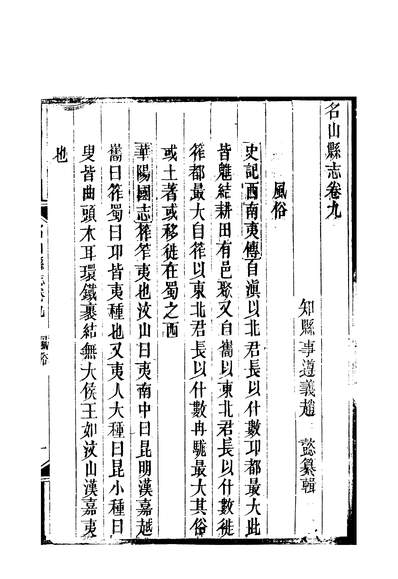 名山縣志卷九
知縣事遵義趙懿纂輯
風俗
史記西南夷傳自滇以北君長以什數邛都最大此
皆魋結耕田有邑聚又自嶲以東北君長以什數徙
筰都最大自筰以東北君長以什數冉駹最大其俗
或土著或移徙在蜀之西
華陽國志筰笮夷也汶山曰夷南中曰昆明漢嘉越
嶲曰筰蜀曰邛皆夷種也又夷人大種曰昆小種曰
叟皆曲頭木耳環鐵裹結無大侯王如汶山漢嘉夷
也
名山縣志卷九
風俗
一